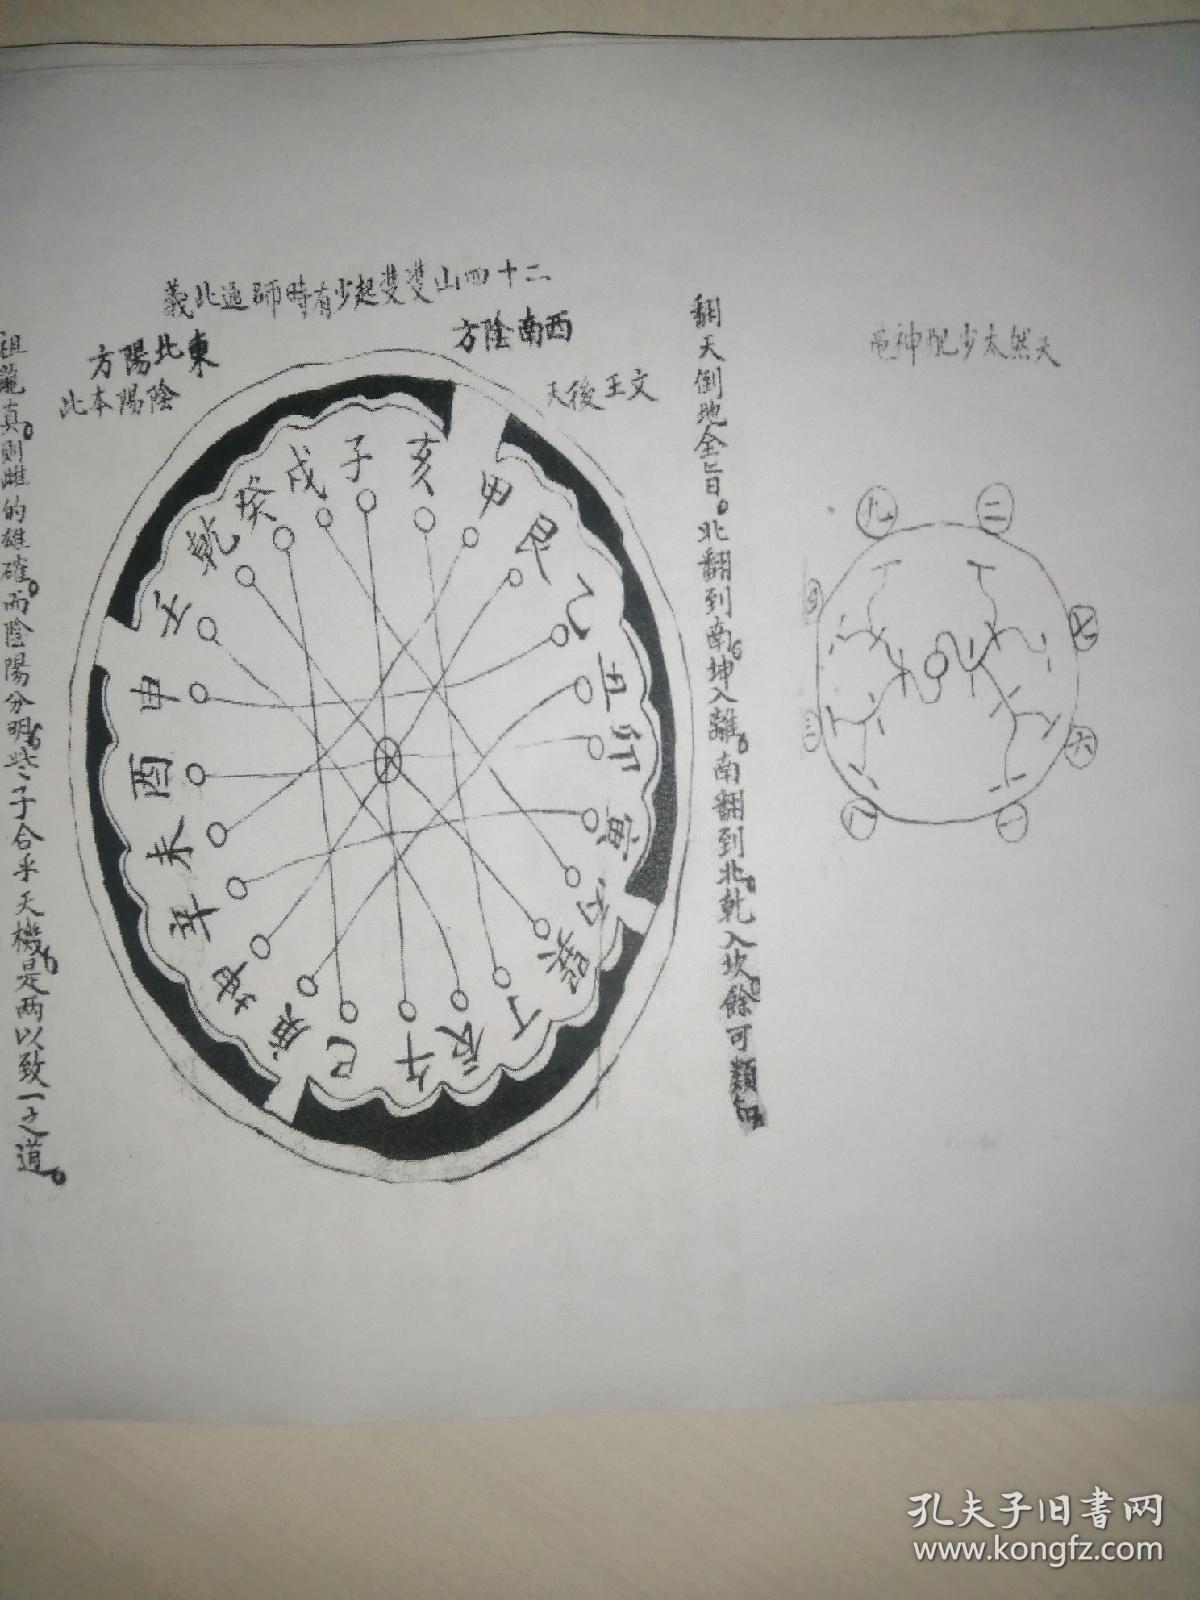 天然太少配神龟
二 七 六 一 八 三 四 九
翻天倒地全旨。北翻到南。坤入離。南翻到北。乾入坎。餘可類知
二十四山雙雙起少有時師通此義
西南陰方
文王後天
東北陽方
陰陽本此
子 亥 甲 艮 乙 丑 卯 寅 丙 巽 丁 辰 午 巳 庚 坤 辛 未 酉 申 壬 乾 癸 戌
祖龍真。則雌的雄確。而陰陽分明。些子合乎天機。是两以致一之道。
孔夫子旧书网
www.kongfz.com